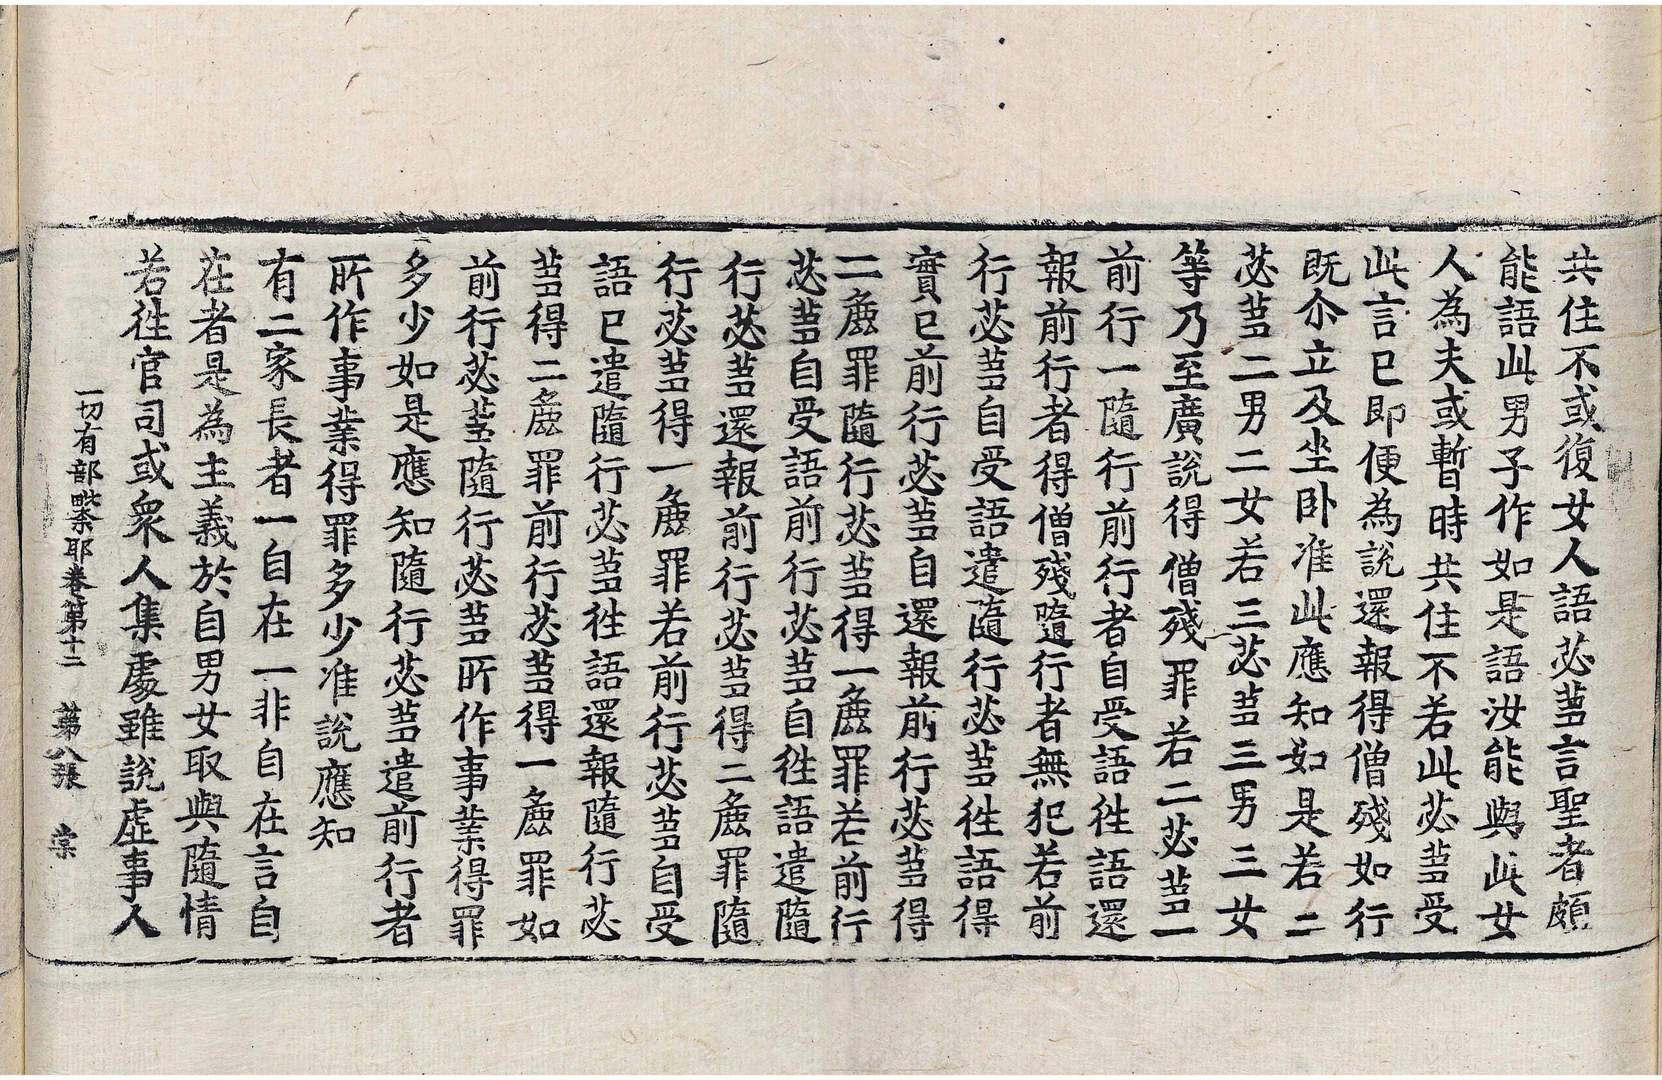 共住不或復女人語苾蒭言聖者頗
能語此男子作如是語汝能與此女
人為夫或暫時共住不若此苾蒭受
此言已即便為說還報得僧殘如行
既尒立及坐卧准此應知如是若二
苾蒭二男二女若三苾蒭三男三女
等乃至廣說得僧殘罪若二苾蒭一
前行一隨行前行者自受語往語還
報前行者得僧殘隨行者無犯若前
行苾蒭自受語遣隨行苾蒭往語得
實已前行苾蒭自還報前行苾蒭得
二麁罪隨行苾蒭得一麁罪若前行
苾蒭自受語前行苾蒭自往語遣隨
行苾蒭還報前行苾蒭得二麁罪隨
行苾蒭得一麁罪若前行苾蒭自受
語已遣隨行苾蒭往語還報隨行苾
蒭得二麁罪前行苾蒭得一麁罪如
前行苾蒭隨行苾蒭所作事業得罪
多少如是應知隨行苾蒭遣前行者
所作事業得罪多少准說應知
有二家長者一自在一非自在言自
在者是為主義於自男女取與隨情
若往官司或衆人集處雖說虛事人
一切有部毗柰耶卷第十二 第八張 棠